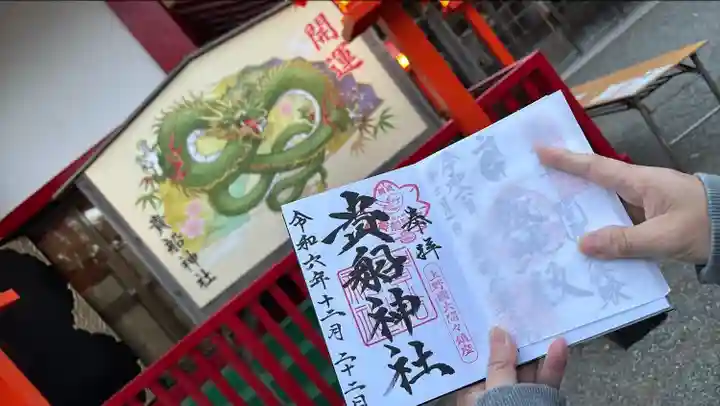 開運
貴船神社
奉拝
貴船神社
令和六年十二月二十二日
上野國大間々鎮座